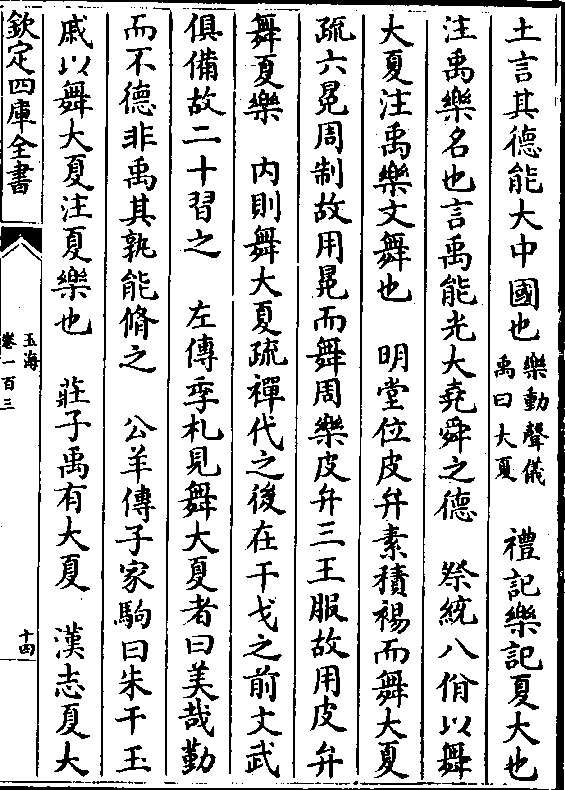 土言其德能大中國也樂動聲儀禹曰大夏　禮記樂記夏大也
注禹樂名也言禹能光大堯舜之德　祭統八佾以舞
大夏注禹樂文舞也　明堂位皮弁素積裼而舞大夏
疏六冕周制故用冕而舞周樂皮弁三王服故用皮弁
舞夏樂　内則舞大夏疏禪代之後在干戈之前文武
俱備故二十習之　左傳季札見舞大夏者曰美哉勤
而不德非禹其孰能脩之　公羊傳子家駒曰朱干玉
戚以舞大夏注夏樂也　莊子禹有大夏　漢志夏大
欽定四庫全書
玉海
卷一百三
十四